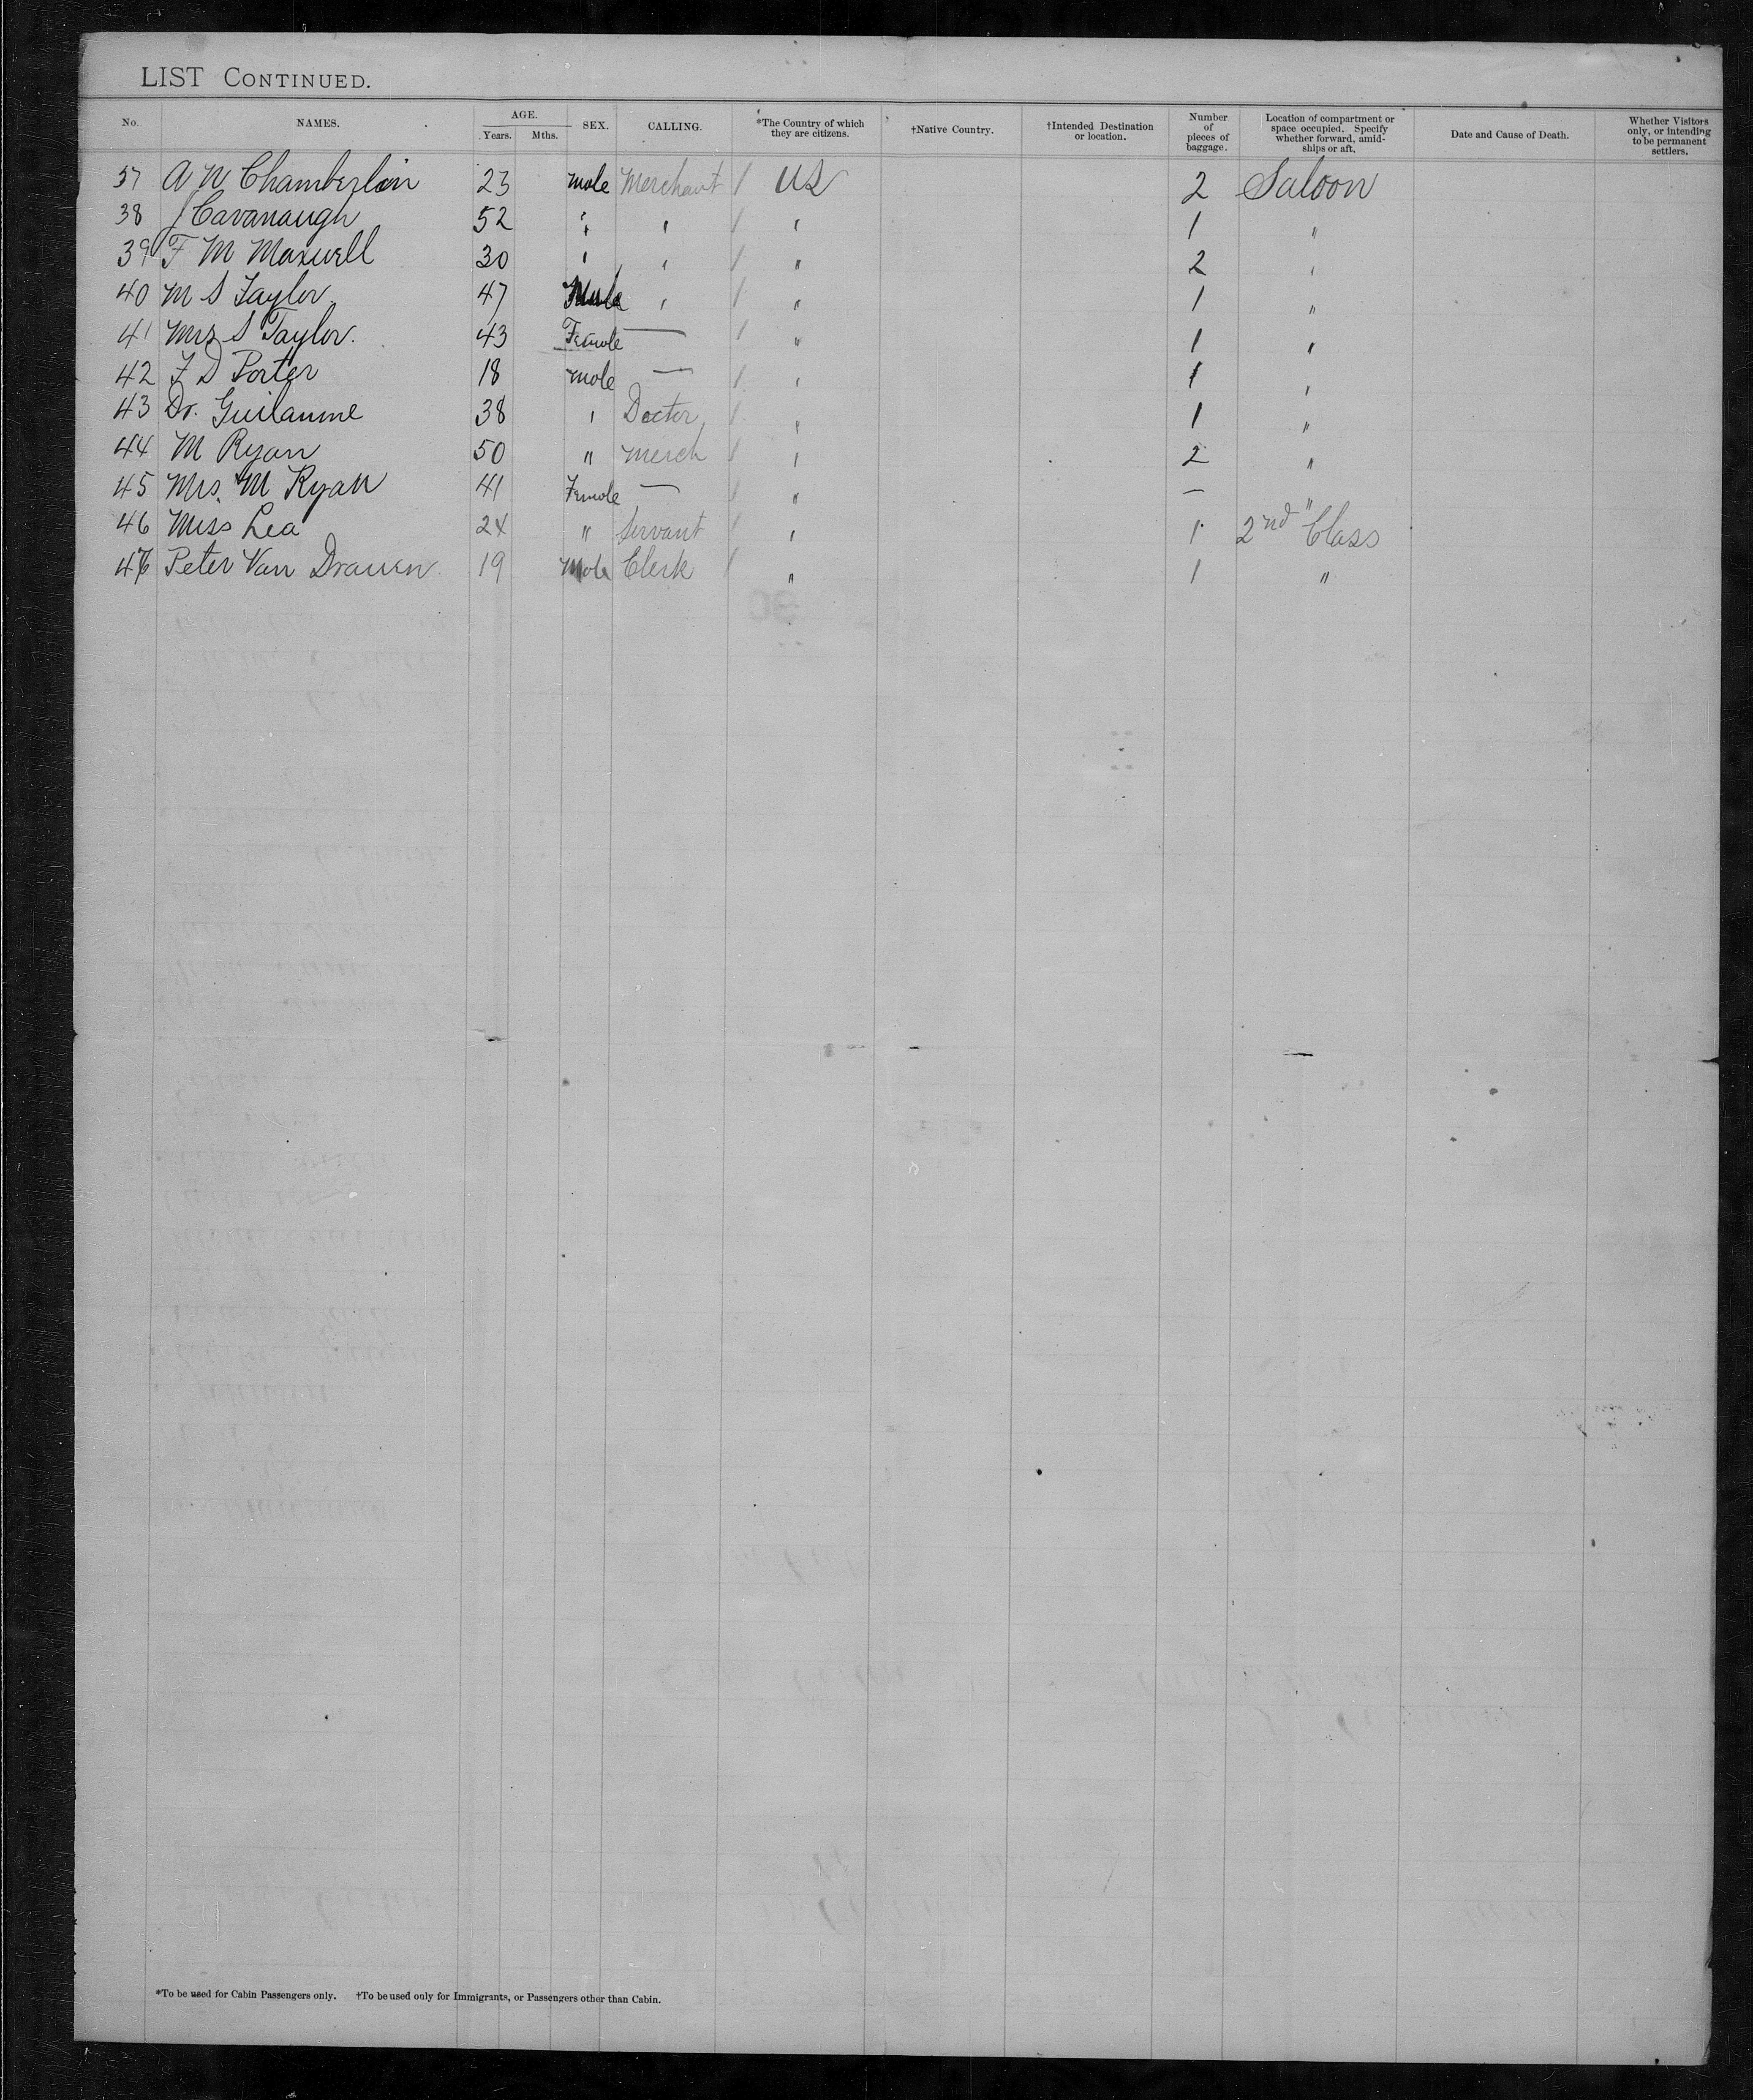 LIST CONTINUED.
No. NAMES. AGE. Years. Mths. SEX. CALLING. *The Country of which they are citizens. †Native Country. †Intended Destination or location. Number of pieces of baggage. Location of compartment or space occupied. Specify whether forward, amidships or aft. Date and Cause of Death. Whether Visitors only, or intending to be permanent settlers.
37 A N Chamberlain 23 male Merchant / US 2 Saloon
38 J Cavanaugh 52 " " / " 1 "
39 F M Maxwell 30 " " / " 2 "
40 M S Taylor 47 Male " / " 1 "
41 Mrs S Taylor. 43 Female — / " 1 "
42 F D Porter 18 male — / " 1 "
43 Dr. Guilaume 38 " Doctor / " 1 "
44 M Ryan 50 " Merch / " 2 "
45 Mrs. M Ryan 41 Female — / " — "
46 Miss Lea 24 " Servant / " 1 2nd Class
47 Peter Van Drauen 19 Male Clerk / " 1 "
*To be used for Cabin Passengers only. †To be used only for Immigrants, or Passengers other than Cabin.